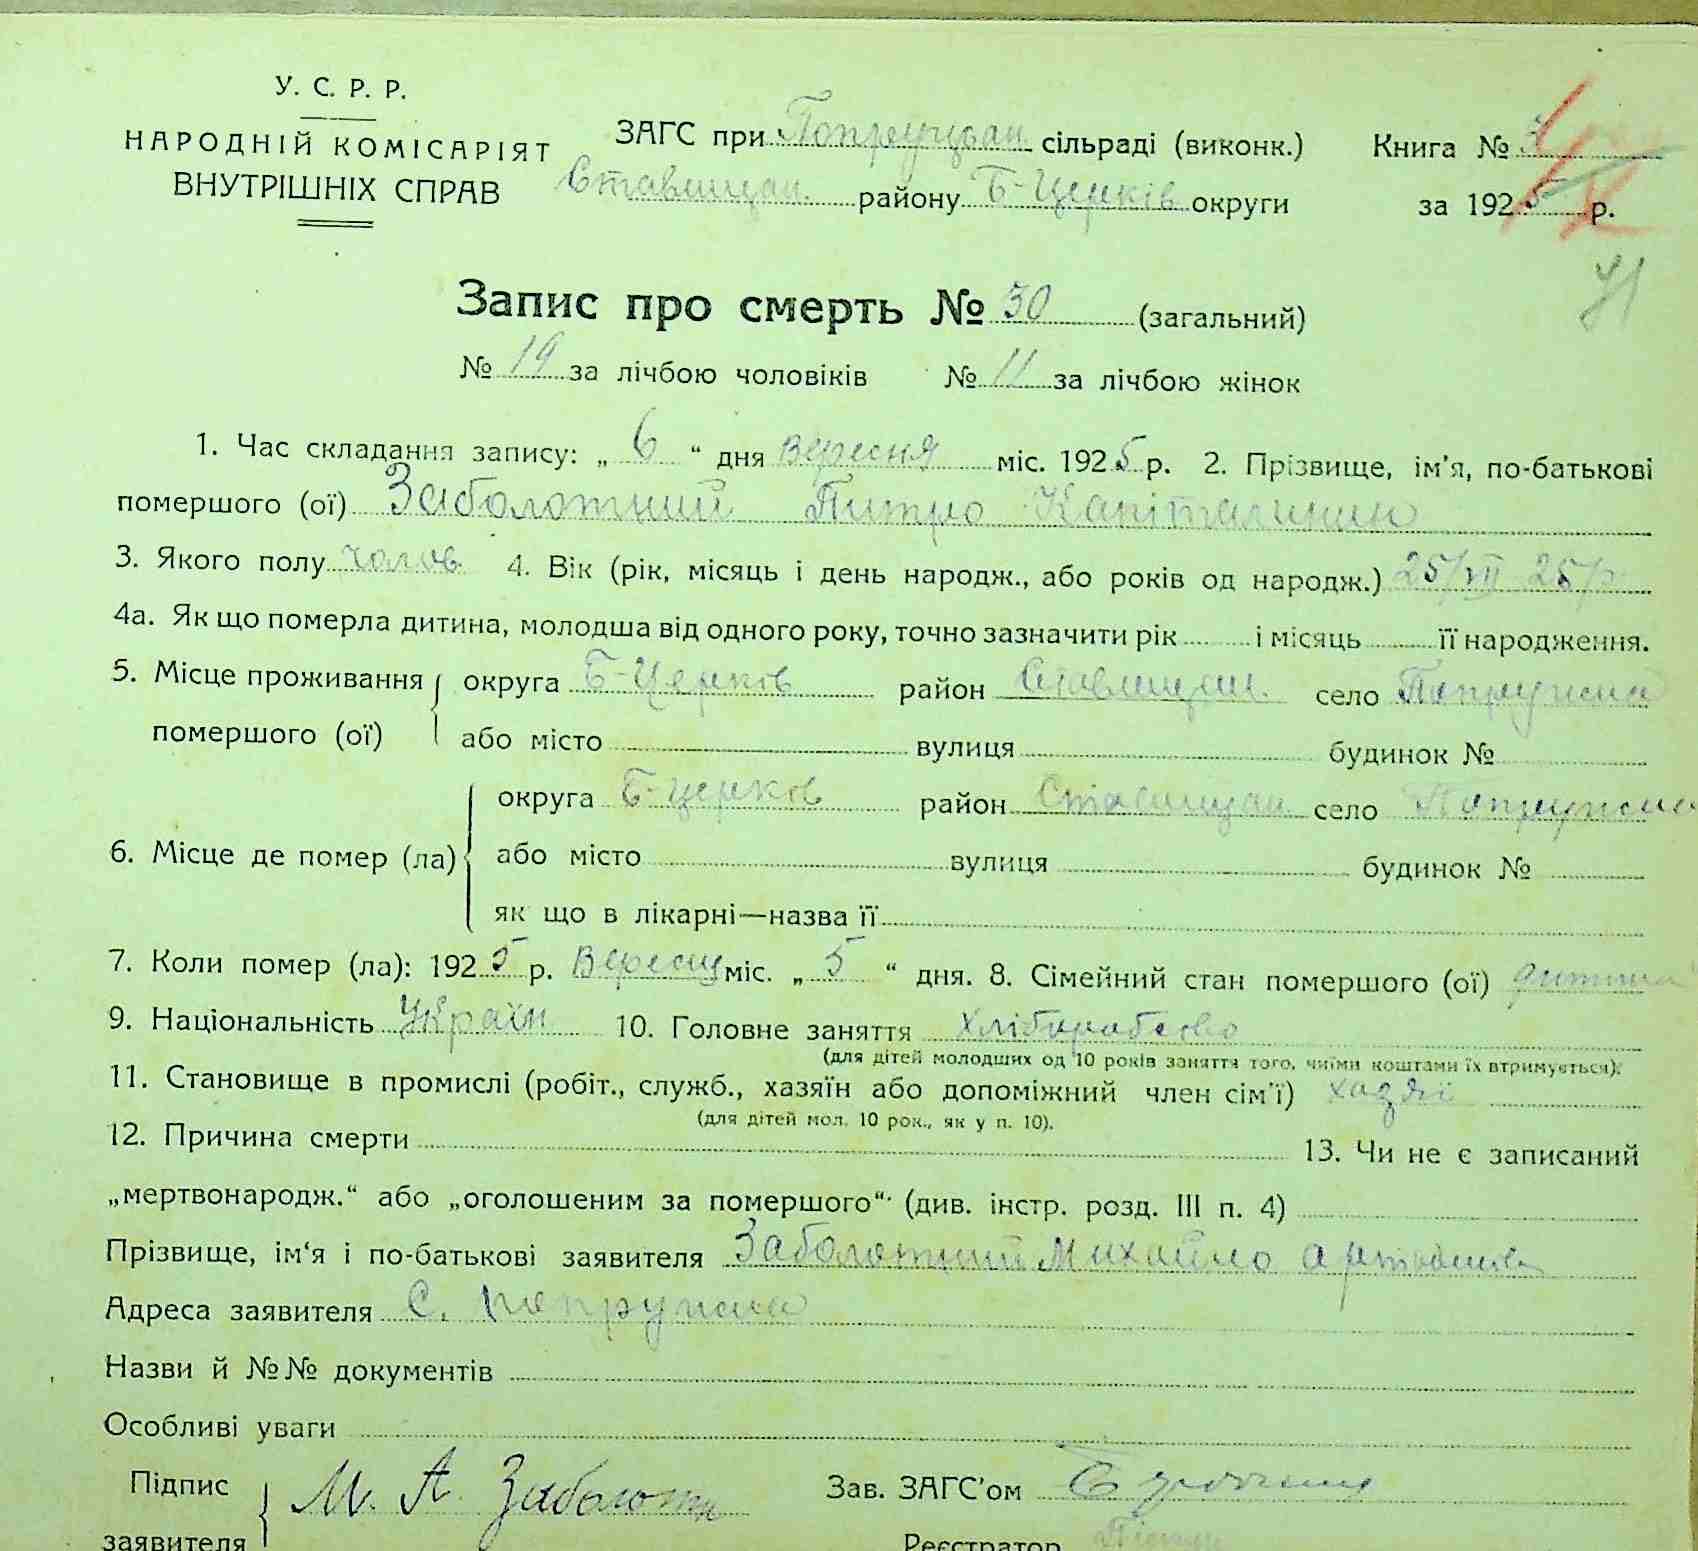 У. С. Р. Р.
НАРОДНІЙ КОМІСАРІЯТ
ВНУТРІШНІХ СПРАВ
ЗАГС при Попружан сільраді (виконк.)
Ставищан. району Б-Церків округи
Книга №
за 1925 р.
41
Запис про смерть № 30 (загальний)
№ 19 за лічбою чоловіків № 11 за лічбою жінок
1. Час складання запису: „ 6 “ дня вересня міс. 1925 р. 2. Прізвище, ім'я, по-батькові
помершого (ої) Заболотний Питро
3. Якого полу чолов 4. Вік (рік, місяць і день народж., або років од народж.) 25/VII 25/р
4а. Як що померла дитина, молодша від одного року, точно зазначити рік і місяць її народження.
5. Місце проживання помершого (ої) округа Б-Церків район Ставищан. село Попружна
або місто вулиця будинок №
6. Місце де помер (ла) округа Б-Церків район Ставищан село Попружна
або місто вулиця будинок №
як що в лікарні—назва її
7. Коли помер (ла): 1925 р. Вересня міс. „ 5 “ дня. 8. Сімейний стан помершого (ої) дитина
9. Національність Україн 10. Головне заняття Хліборобство
(для дітей молодших од 10 років заняття того, чиїми коштами їх втримується).
11. Становище в промислі (робіт., служб., хазяїн або допоміжний член сім'ї) хазяї
(для дітей мол. 10 рок., як у п. 10).
12. Причина смерти 13. Чи не є записаний
„мертвонародж.“ або „оголошеним за помершого“ (див. інстр. розд. III п. 4)
Прізвище, ім'я і по-батькові заявителя Заболотний Михайло
Адреса заявителя С. Попружна
Назви й №№ документів
Особливі уваги
Підпис заявителя М. А. Заболотн
Зав. ЗАГС'ом
Реєстратор